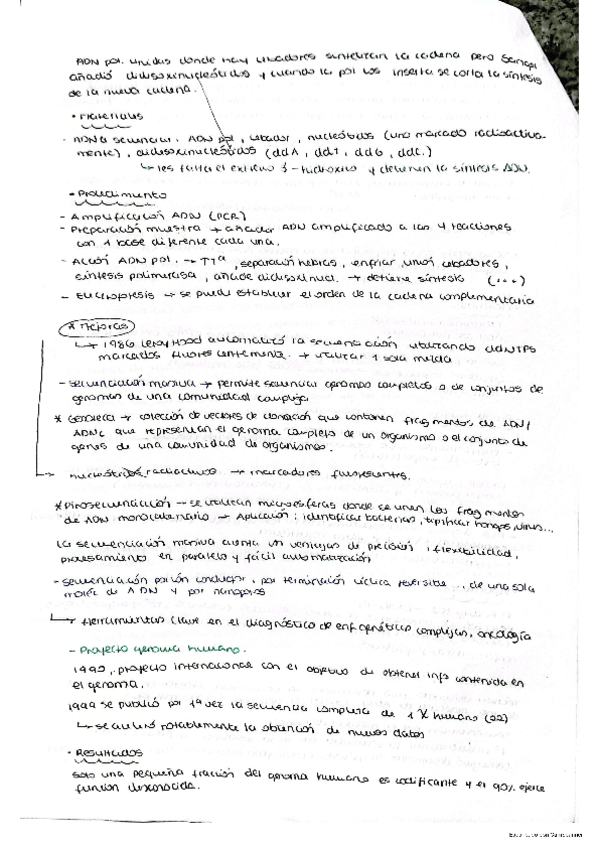 ADN pol. unidas donde hay cebadores sintetizan la cadena pero Sanger
añadió didesoxinucleótidos y cuando la pol los inserta se corta la síntesis
de la nueva cadena.
• Materiales
- ADN a secuenciar, ADN pol, cebador, nucleótidos (uno marcado radioactiva-
mente), didesoxinucleótidos (ddA, ddT, ddG, ddC.)
↳ les falta el extremo 3'-hidroxilo y detienen la síntesis ADN.
• Procedimiento
- Amplificación ADN (PCR)
- Preparación muestra → añadir ADN amplificado a las 4 reacciones
con 1 base diferente cada una.
- Acción ADN pol. → ↑Tª, separación hebras, enfriar, unión cebadores,
síntesis polimerasa, añade didesoxinucl. → detiene síntesis (...)
- Electroforesis → se puede establecer el orden de la cadena complementaria
* Mejoras
↳ 1986 Leroy Hood automatizó la secuenciación utilizando ddNTPs
marcados fluorescentemente. → utilizar 1 sola mezcla
- Secuenciación masiva → permite secuenciar genomas completos o de conjuntos de
genomas de una comunidad compleja
* Genoteca → colección de vectores de clonación que contienen fragmentos de ADN/
ADNc que representan el genoma completo de un organismo o el conjunto de
genes de una comunidad de organismos.
→ nucleótidos radiactivos → marcadores fluorescentes.
* Pirosecuenciación → se utilizan microesferas donde se unen los fragmentos
de ADN monocatenario → Aplicación: identificar bacterias, tipificar hongos, virus...
La secuenciación masiva cuenta con ventajas de precisión, flexibilidad,
procesamiento en paralelo y fácil automatización
- Secuenciación por ion conductor, por terminación cíclica reversible .. de una sola
moléc de ADN y por nanoporos
↳ Herramientas clave en el diagnóstico de enf. genéticas complejas, oncología
- Proyecto genoma humano.
1990, proyecto internacional con el objetivo de obtener info contenida en
el genoma.
1999 se publicó por 1ª vez la secuencia completa de 1 X humano (22)
↳ se aceleró notablemente la obtención de nuevos datos
• Resultados
Solo una pequeña fracción del genoma humano es codificante y el 90% ejerce
función desconocida.